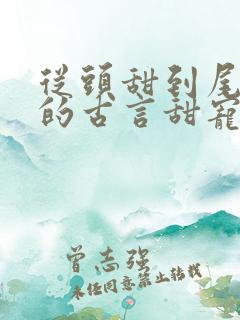 從頭甜到尾
的古言甜寵
曾志强
未经同意禁止转载